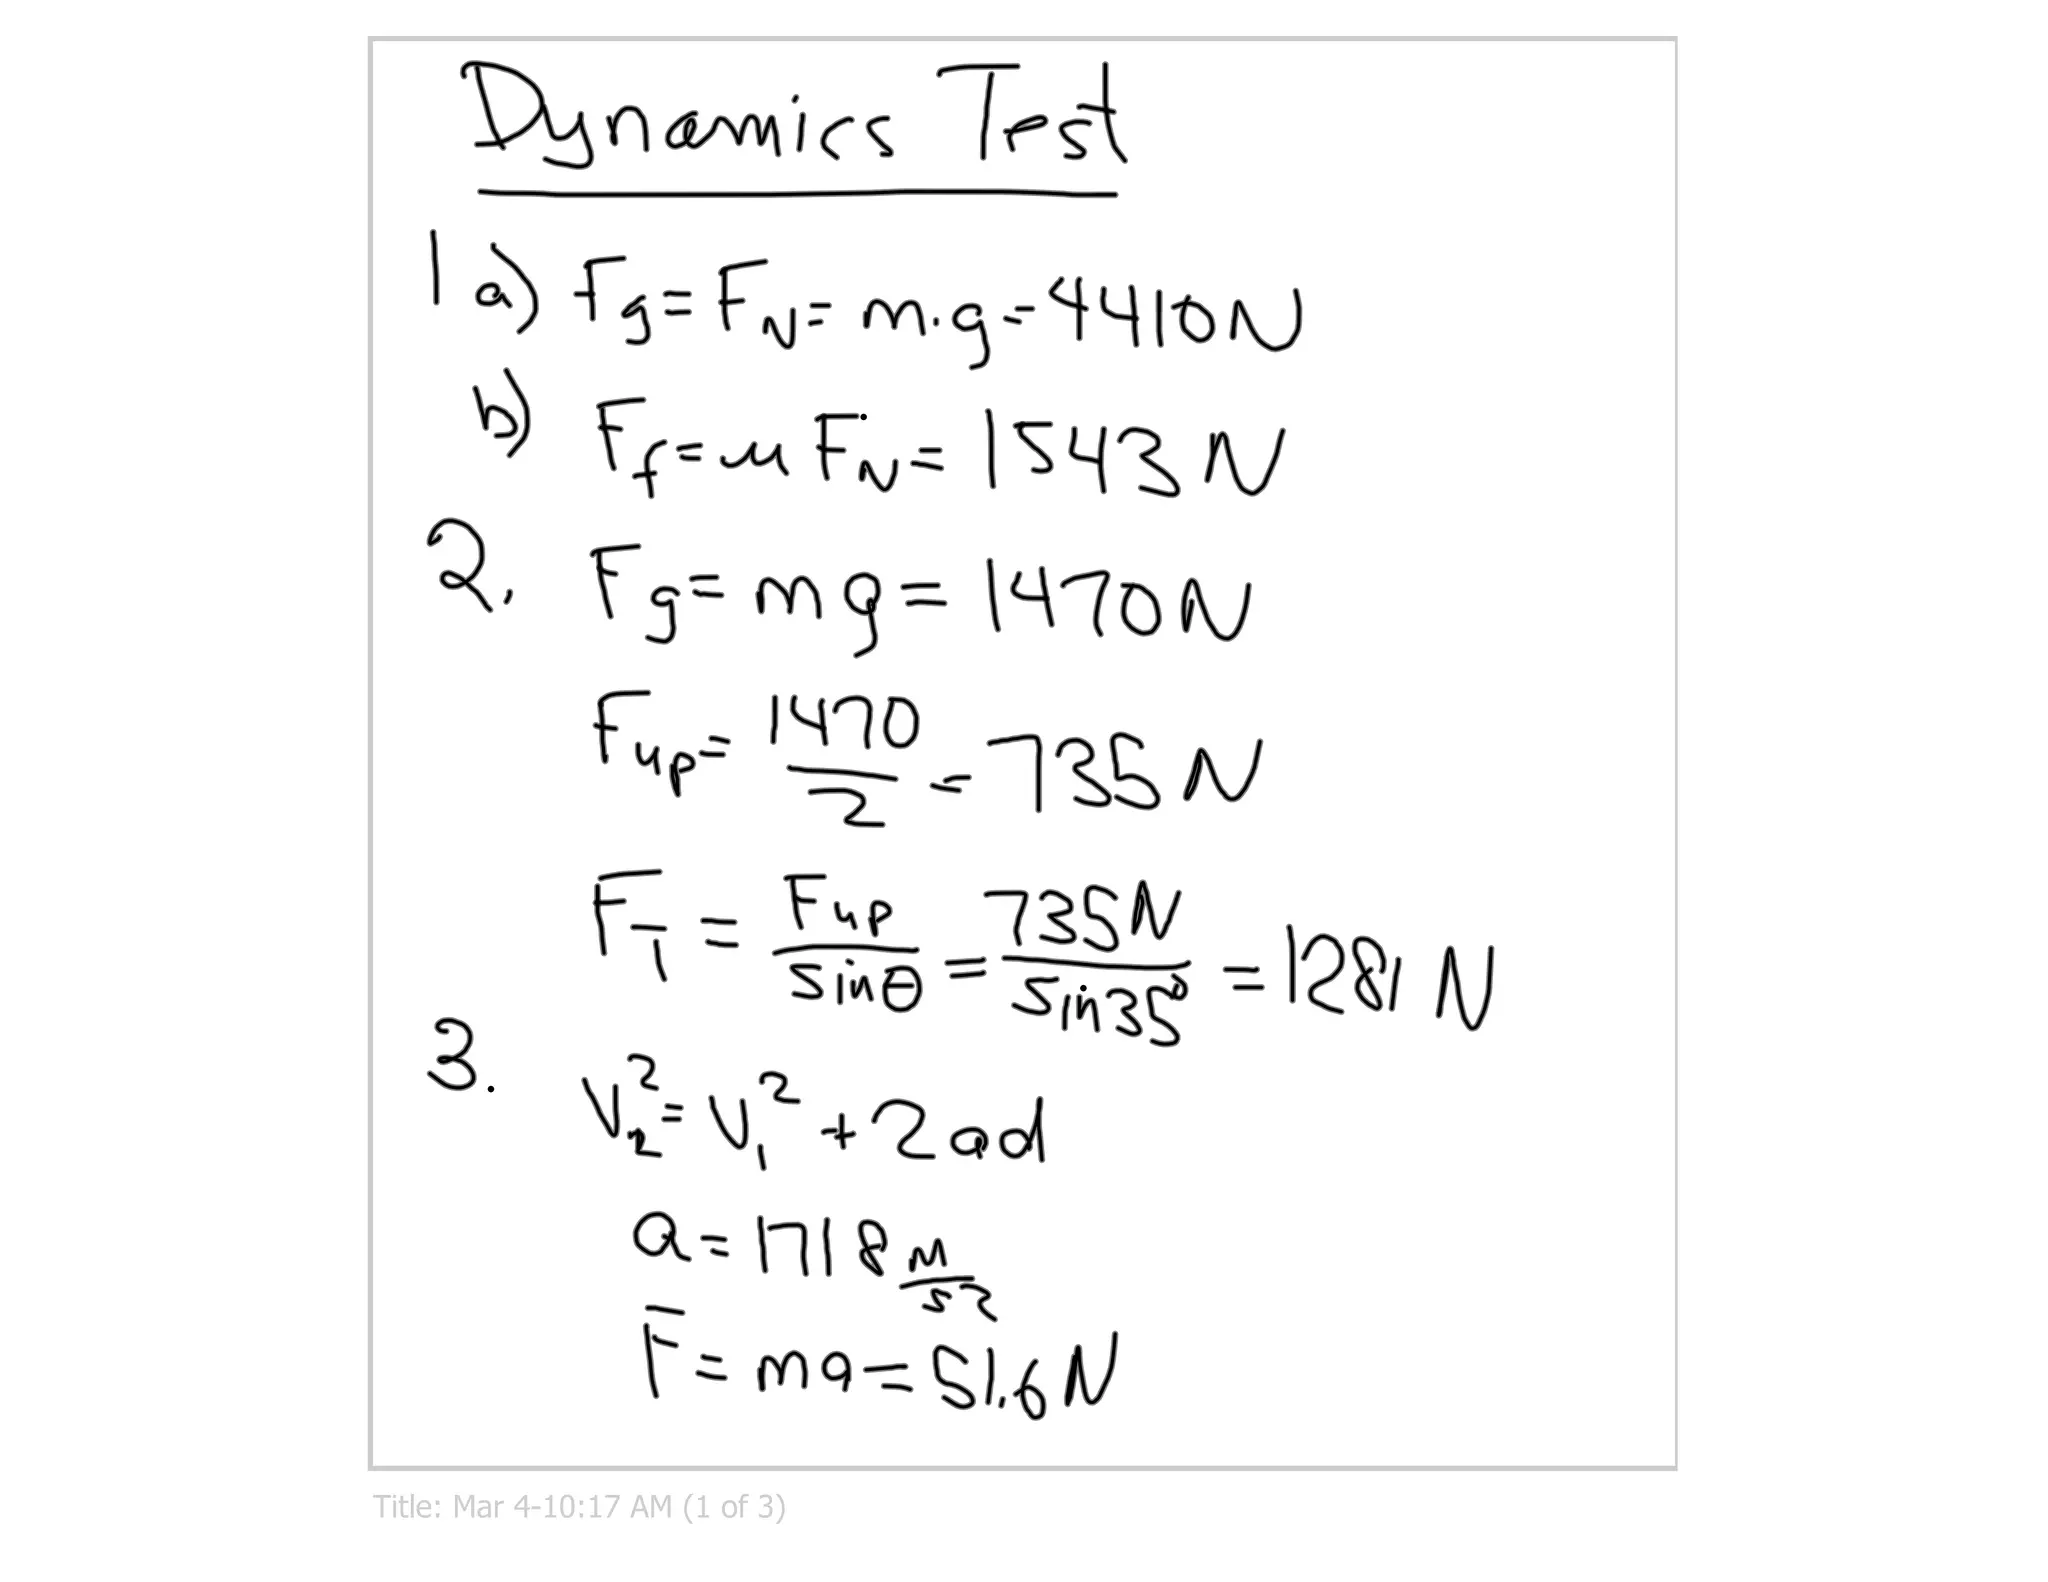 Dynamics Test
1 a) Fg = FN = m·g = 4410N
b) Ff = μ FN = 1543 N
2. Fg = mg = 1470N
Fup = 1470/2 = 735 N
FT = Fup/sinθ = 735N/sin35° = 1281 N
3. V₂² = V₁² + 2ad
a = 1718 m/s²
F = ma = 51.6 N
Title: Mar 4-10:17 AM (1 of 3)